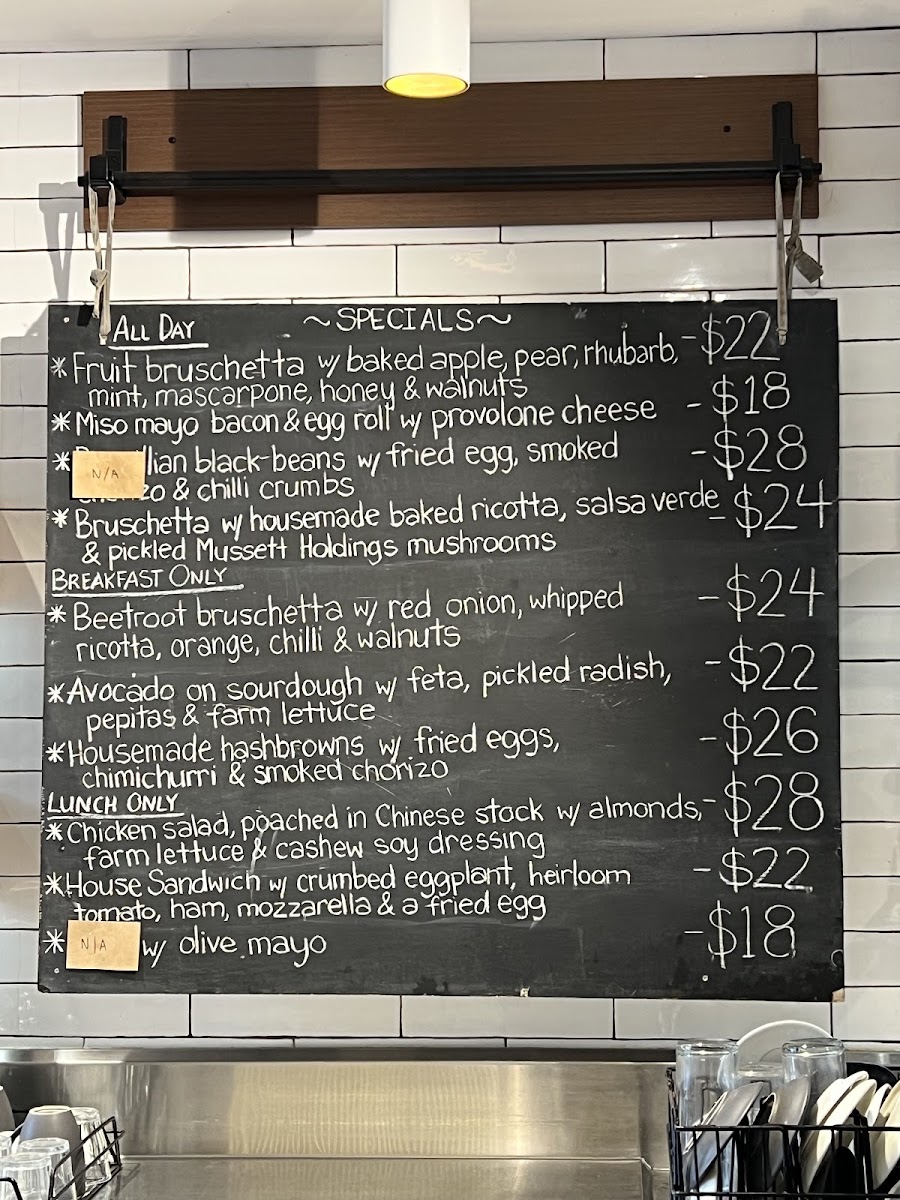 ~SPECIALS~
ALL DAY
* Fruit bruschetta w/ baked apple, pear, rhubarb, - $22
mint, mascarpone, honey & walnuts
* Miso mayo bacon & egg roll w/ provolone cheese - $18
* N/A lian black-beans w/ fried egg, smoked - $28
zo & chilli crumbs
* Bruschetta w/ housemade baked ricotta, salsa verde - $24
& pickled Mussett Holdings mushrooms
BREAKFAST ONLY
* Beetroot bruschetta w/ red onion, whipped - $24
ricotta, orange, chilli & walnuts
* Avocado on sourdough w/ feta, pickled radish, - $22
pepitas & farm lettuce
* Housemade hashbrowns w/ fried eggs, - $26
chimichurri & smoked chorizo
LUNCH ONLY
* Chicken salad, poached in Chinese stock w/ almonds, - $28
farm lettuce & cashew soy dressing
* House Sandwich w/ crumbed eggplant, heirloom - $22
tomato, ham, mozzarella & a fried egg
* N/A w/ olive mayo - $18